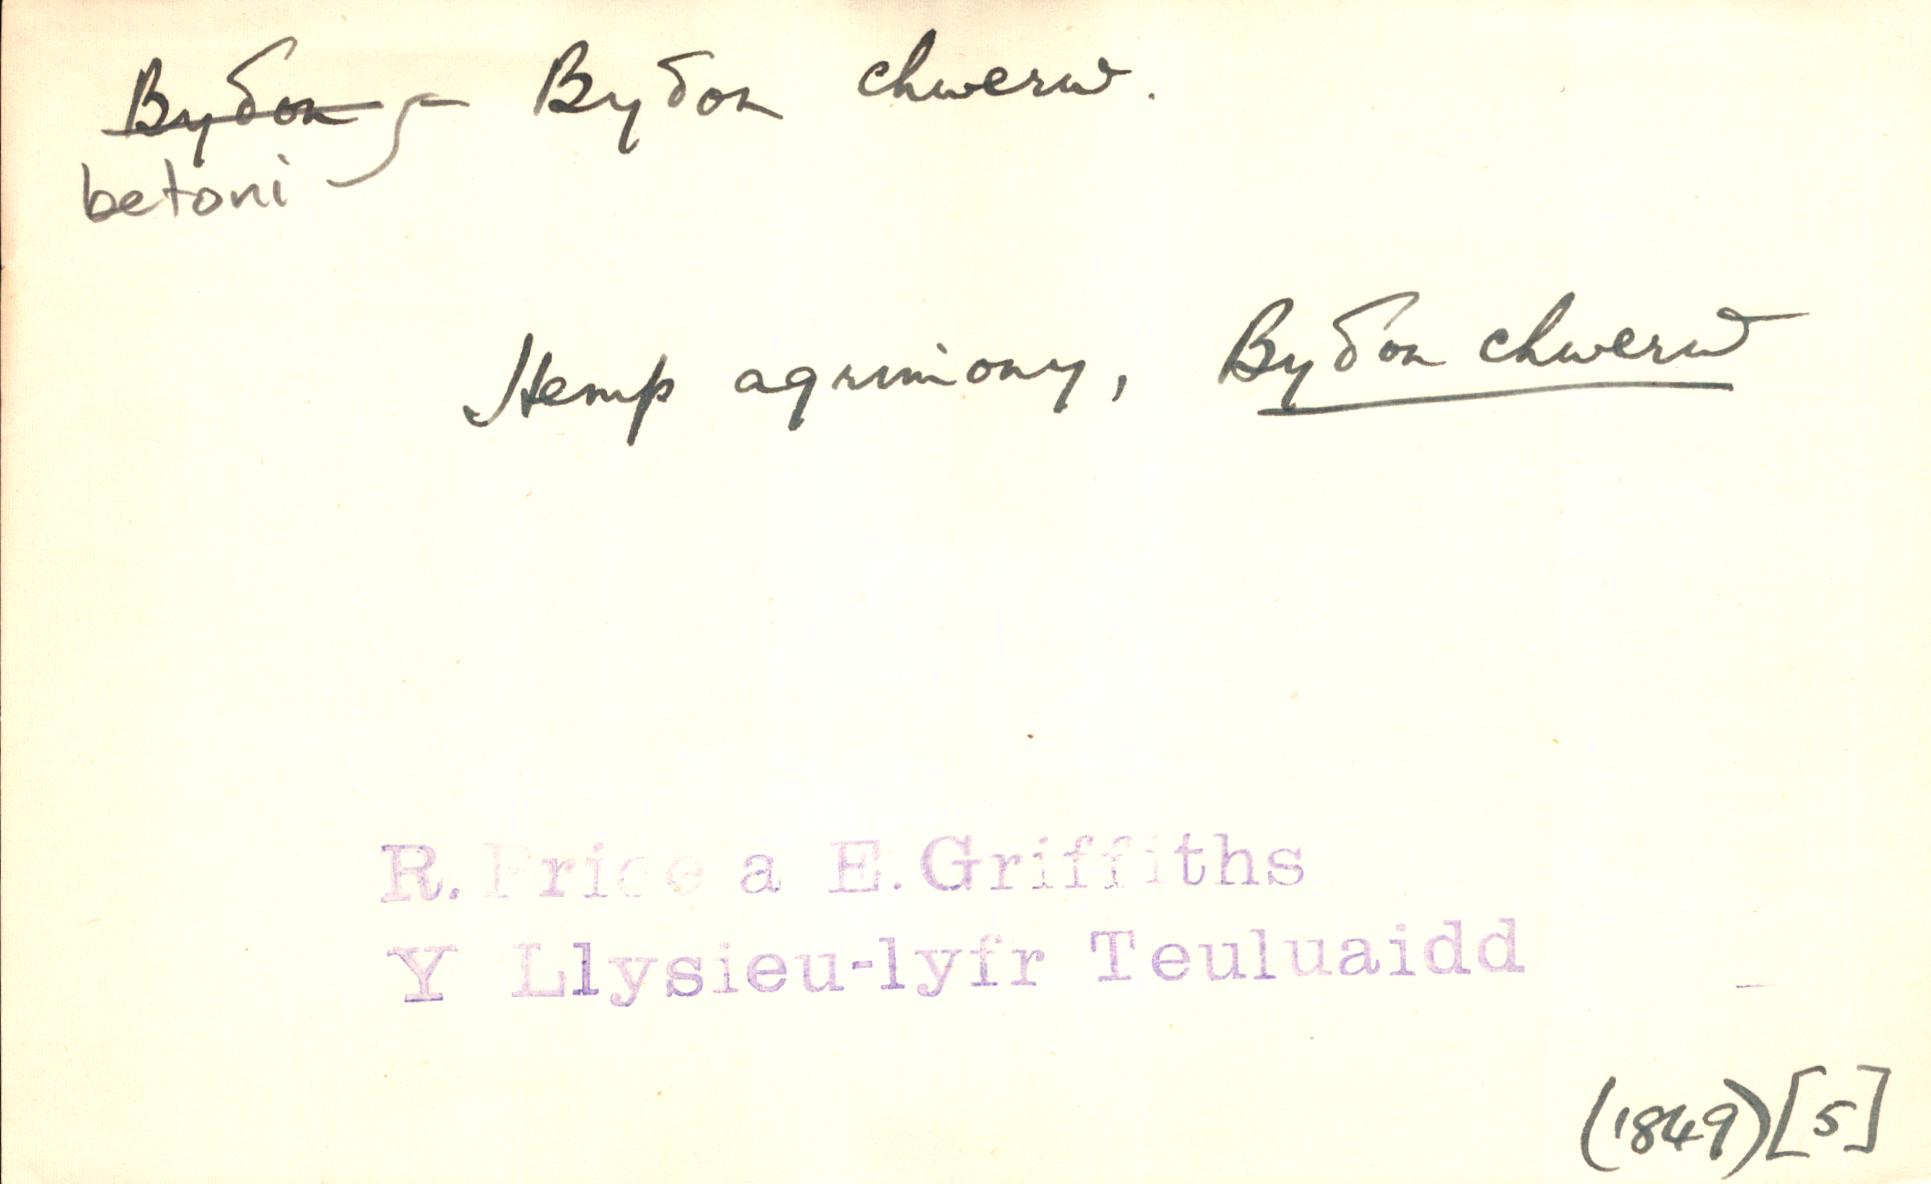 Byδon - Byδon chwerw.
betoni
Hemp agrimony, Byδon chwerw
R. Price a E. Griffiths
Y Llysieu-lyfr Teuluaidd
(1849) [5]